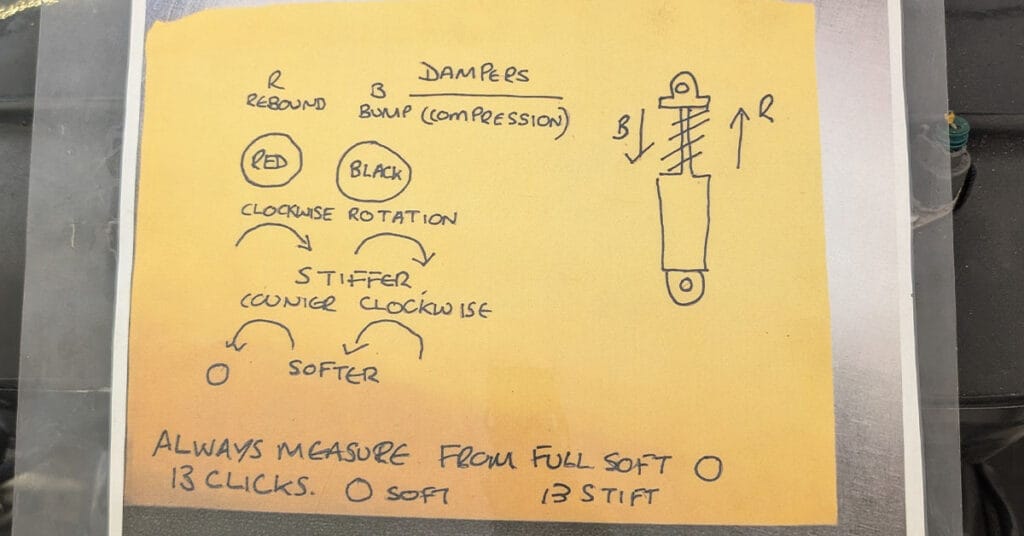 DAMPERS
R B
REBOUND BUMP (COMPRESSION)
RED BLACK
CLOCKWISE ROTATION
STIFFER
COUNTER CLOCKWISE
O SOFTER
B R
ALWAYS MEASURE FROM FULL SOFT O
13 CLICKS. O SOFT 13 STIFT